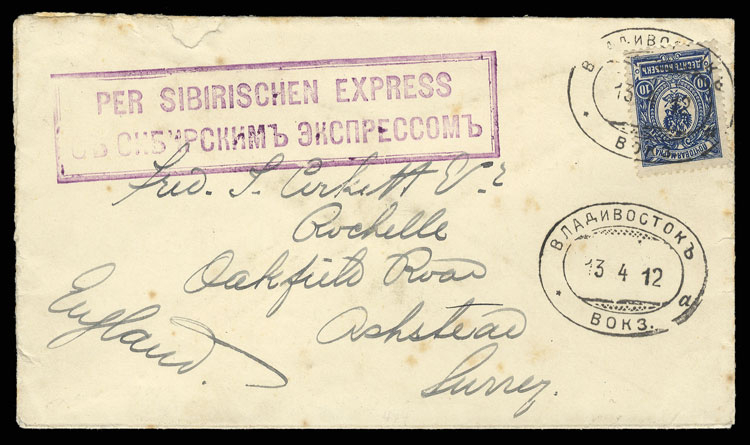 PER SIBIRISCHEN EXPRESS
СЪ СИБИРСКИМЪ ЭКСПРЕССОМЪ
ВЛАДИВОСТОКЪ
13
10 10
ДЕСЯТЬ КОПѢЕКЪ
ПОЧТОВАЯ МАРКА
Fred. J.
Rochelle
Oakfield Road
Ashstead
Surrey.
England.
ВЛАДИВОСТОКЪ
13 4 12
* ВОКЗ. а